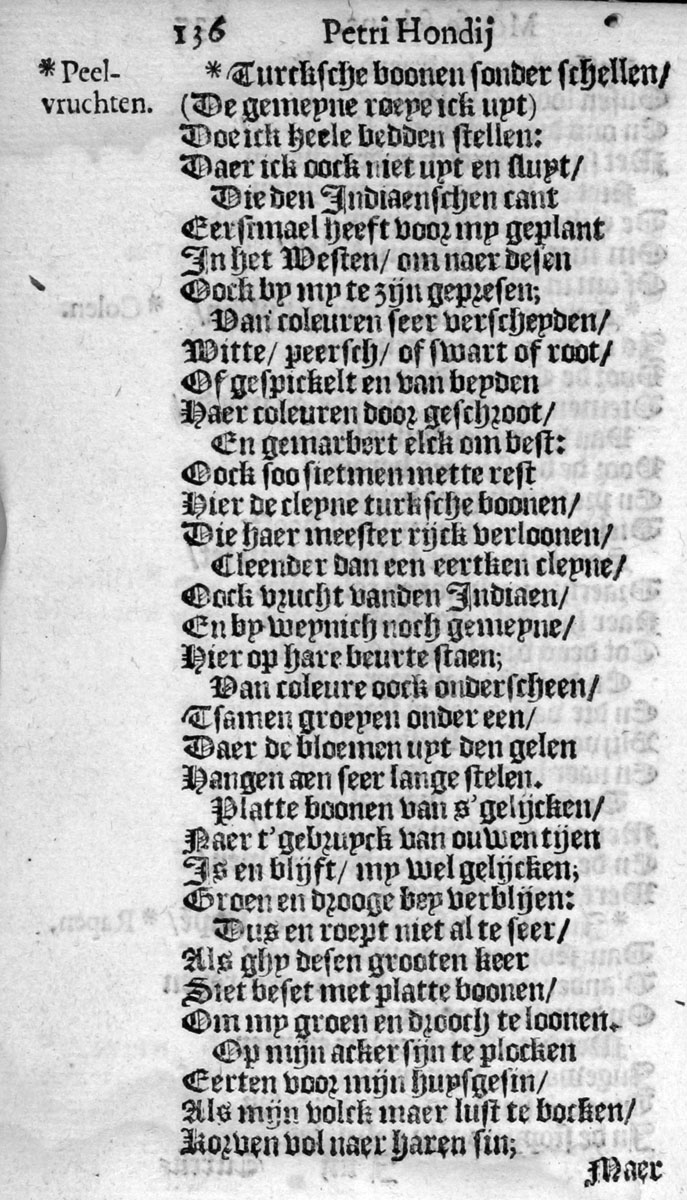 136 Petri Hondij
* Peel-
vruchten.
* Turcksche boonen sonder schellen/
(De gemeyne roeye ick uyt)
Doe ick heele bedden stellen:
Daer ick oock niet uyt en sluyt/
Die den Indiaenschen cant
Eerstmael heeft voor my geplant
In het Westen/ om naer desen
Oock by my te zijn gepresen;
Van coleuren seer verscheyden/
Witte/ peersch/ of swart of root/
Of gespickelt en van beyden
Haer coleuren door geschroot/
En gemarbert elck om best:
Oock soo sietmen mette rest
Hier de cleyne turksche boonen/
Die haer meester rijck verloonen/
Cleender dan een eertken cleyne/
Oock vrucht vanden Indiaen/
En by weynich noch gemeyne/
Hier op hare beurte staen;
Van coleure oock onderscheen/
Tsamen groeyen onder een/
Daer de bloemen uyt den gelen
Hangen aen seer lange stelen.
Platte boonen van s'gelijcken/
Naer t'gebruyck van ouwen tijen
Is en blijft/ my wel gelijcken;
Groen en drooge bey verblijen:
Dus en roept niet al te seer/
Als ghy desen grooten keer
Siet beset met platte boonen/
Om my groen en drooch te loonen.
Op mijn acker sijn te plocken
Eerten voor mijn huysgesin/
Als mijn volck maer lust te bocken/
Korven vol naer haren sin;
Maer